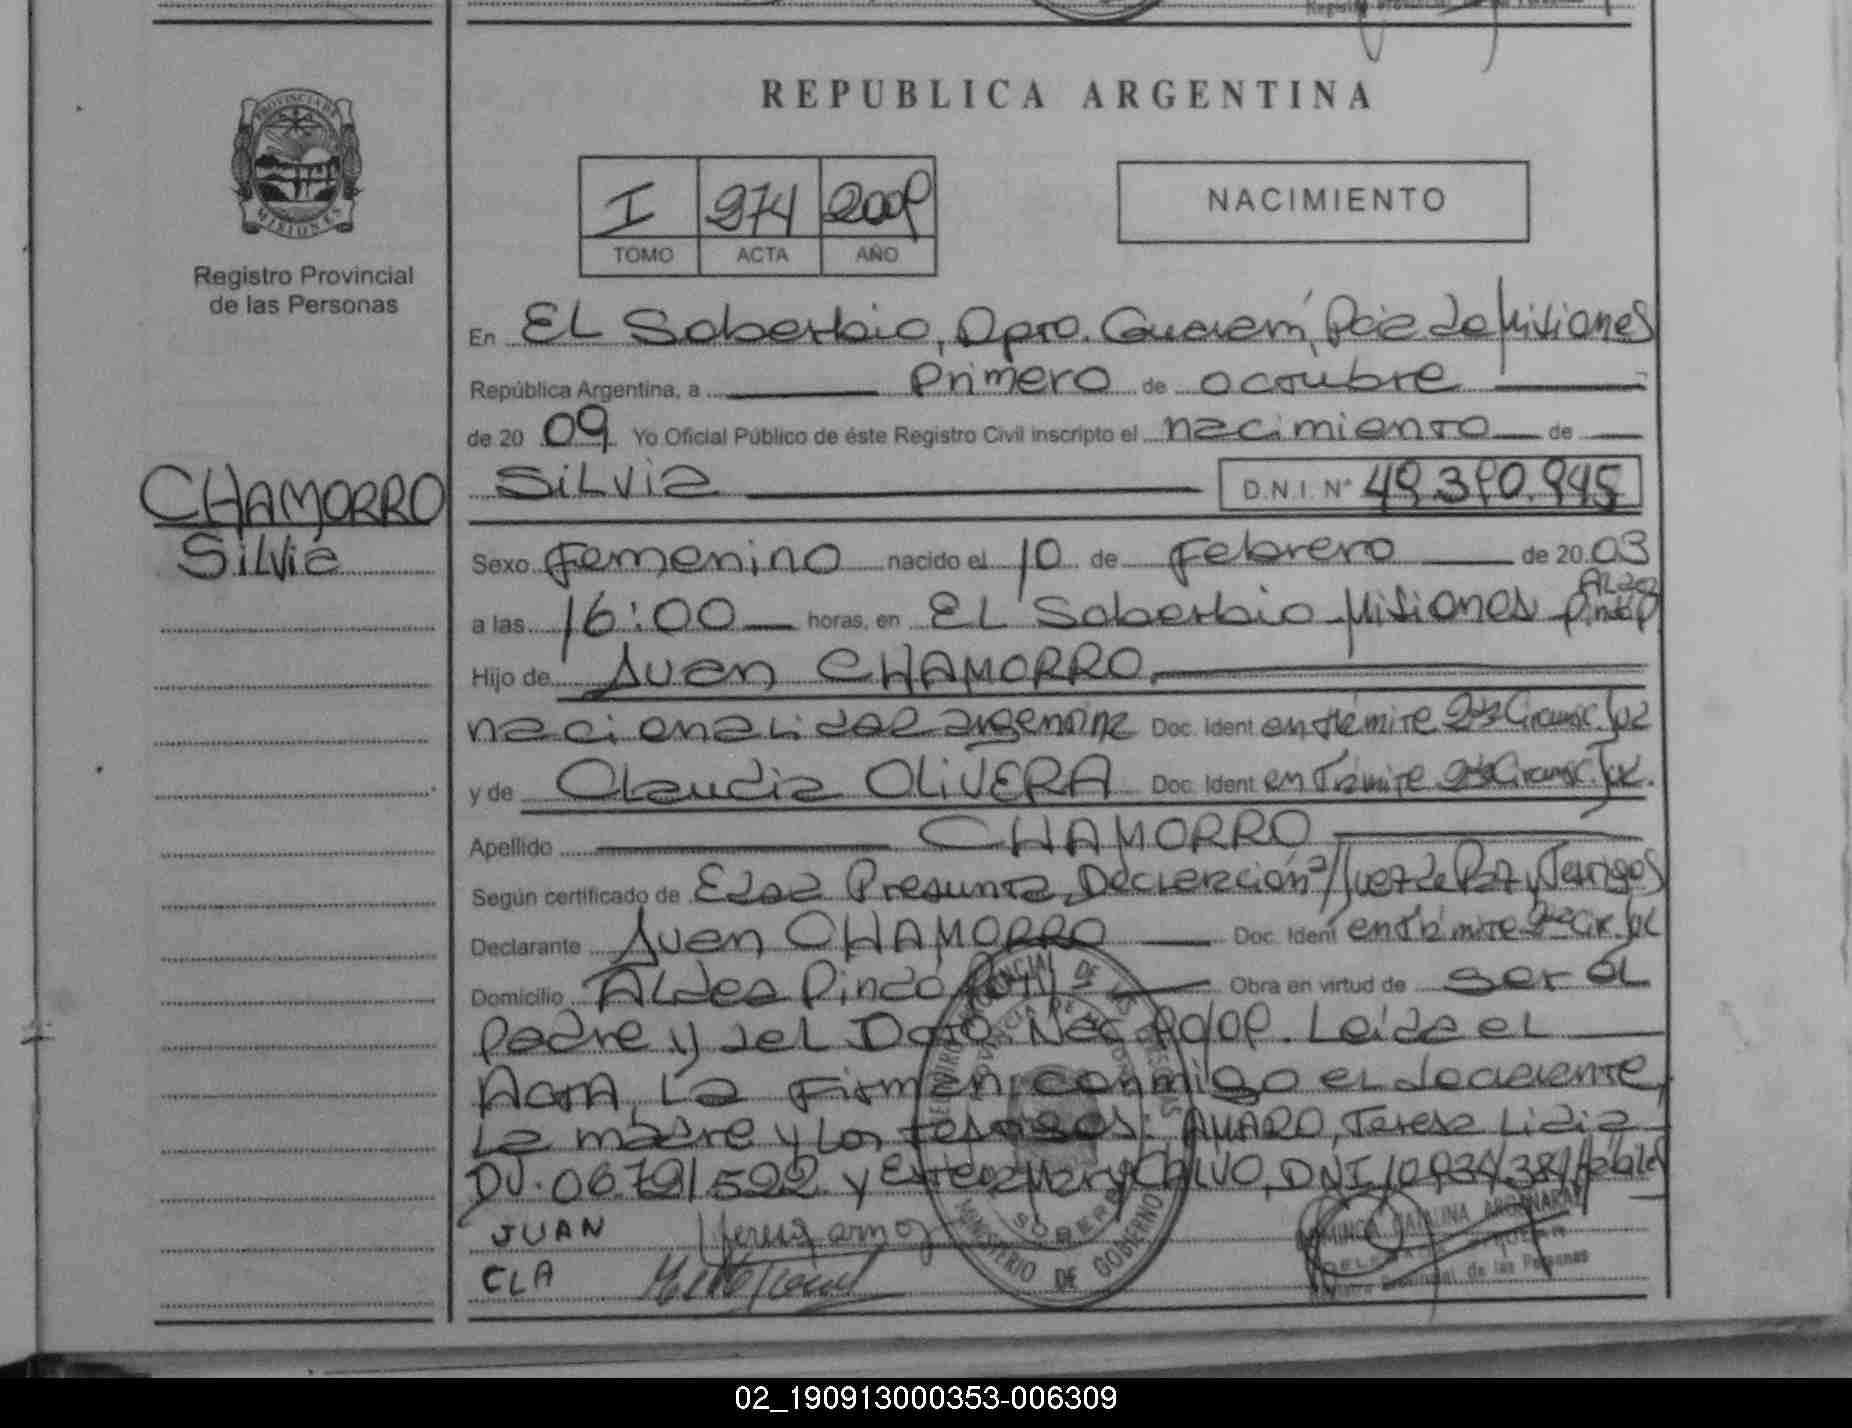 REPUBLICA ARGENTINA
PROVINCIA DE
MISIONES
Registro Provincial
de las Personas
I 274 2009
TOMO ACTA AÑO
NACIMIENTO
En EL Soberbio, Dpto. Guaraní, Pcia. de Misiones
República Argentina, a Primero de octubre
de 20 09 Yo Oficial Público de éste Registro Civil inscripto el nacimiento de
CHAMORRO
Silvia
Silvia D.N.I. Nº 49.390.945
Sexo Femenino nacido el 10 de Febrero de 20 03
a las 16:00 horas, en EL Soberbio Misiones Aldea Pindó P
Hijo de Juan CHAMORRO
nacionalidad argentina Doc. Ident en trámite 2da Circunsc. Jud
y de Claudia OLIVERA Doc. Ident en trámite 2da Circunsc. Jud.
Apellido CHAMORRO
Según certificado de Edad Presunta, Declaración a/Juez de Paz y Testigos
Declarante Juan CHAMORRO Doc. Ident en trámite 2da Cir. Jud
Domicilio Aldea Pindó Obra en virtud de ser el
padre y del Dcto. Nac. 90/09. Leída el
Acta, la firman conmigo el declarante,
la madre y los testigos: AMARO, Teresa Lidia
DNI. 06.791.522 y Ester Mary CALVO, DNI 10.934.384, hábiles
JUAN
CLA
SOBERBIO
MINISTERIO DE GOBIERNO
CATALINA
Registro Provincial de las Personas
02_190913000353-006309